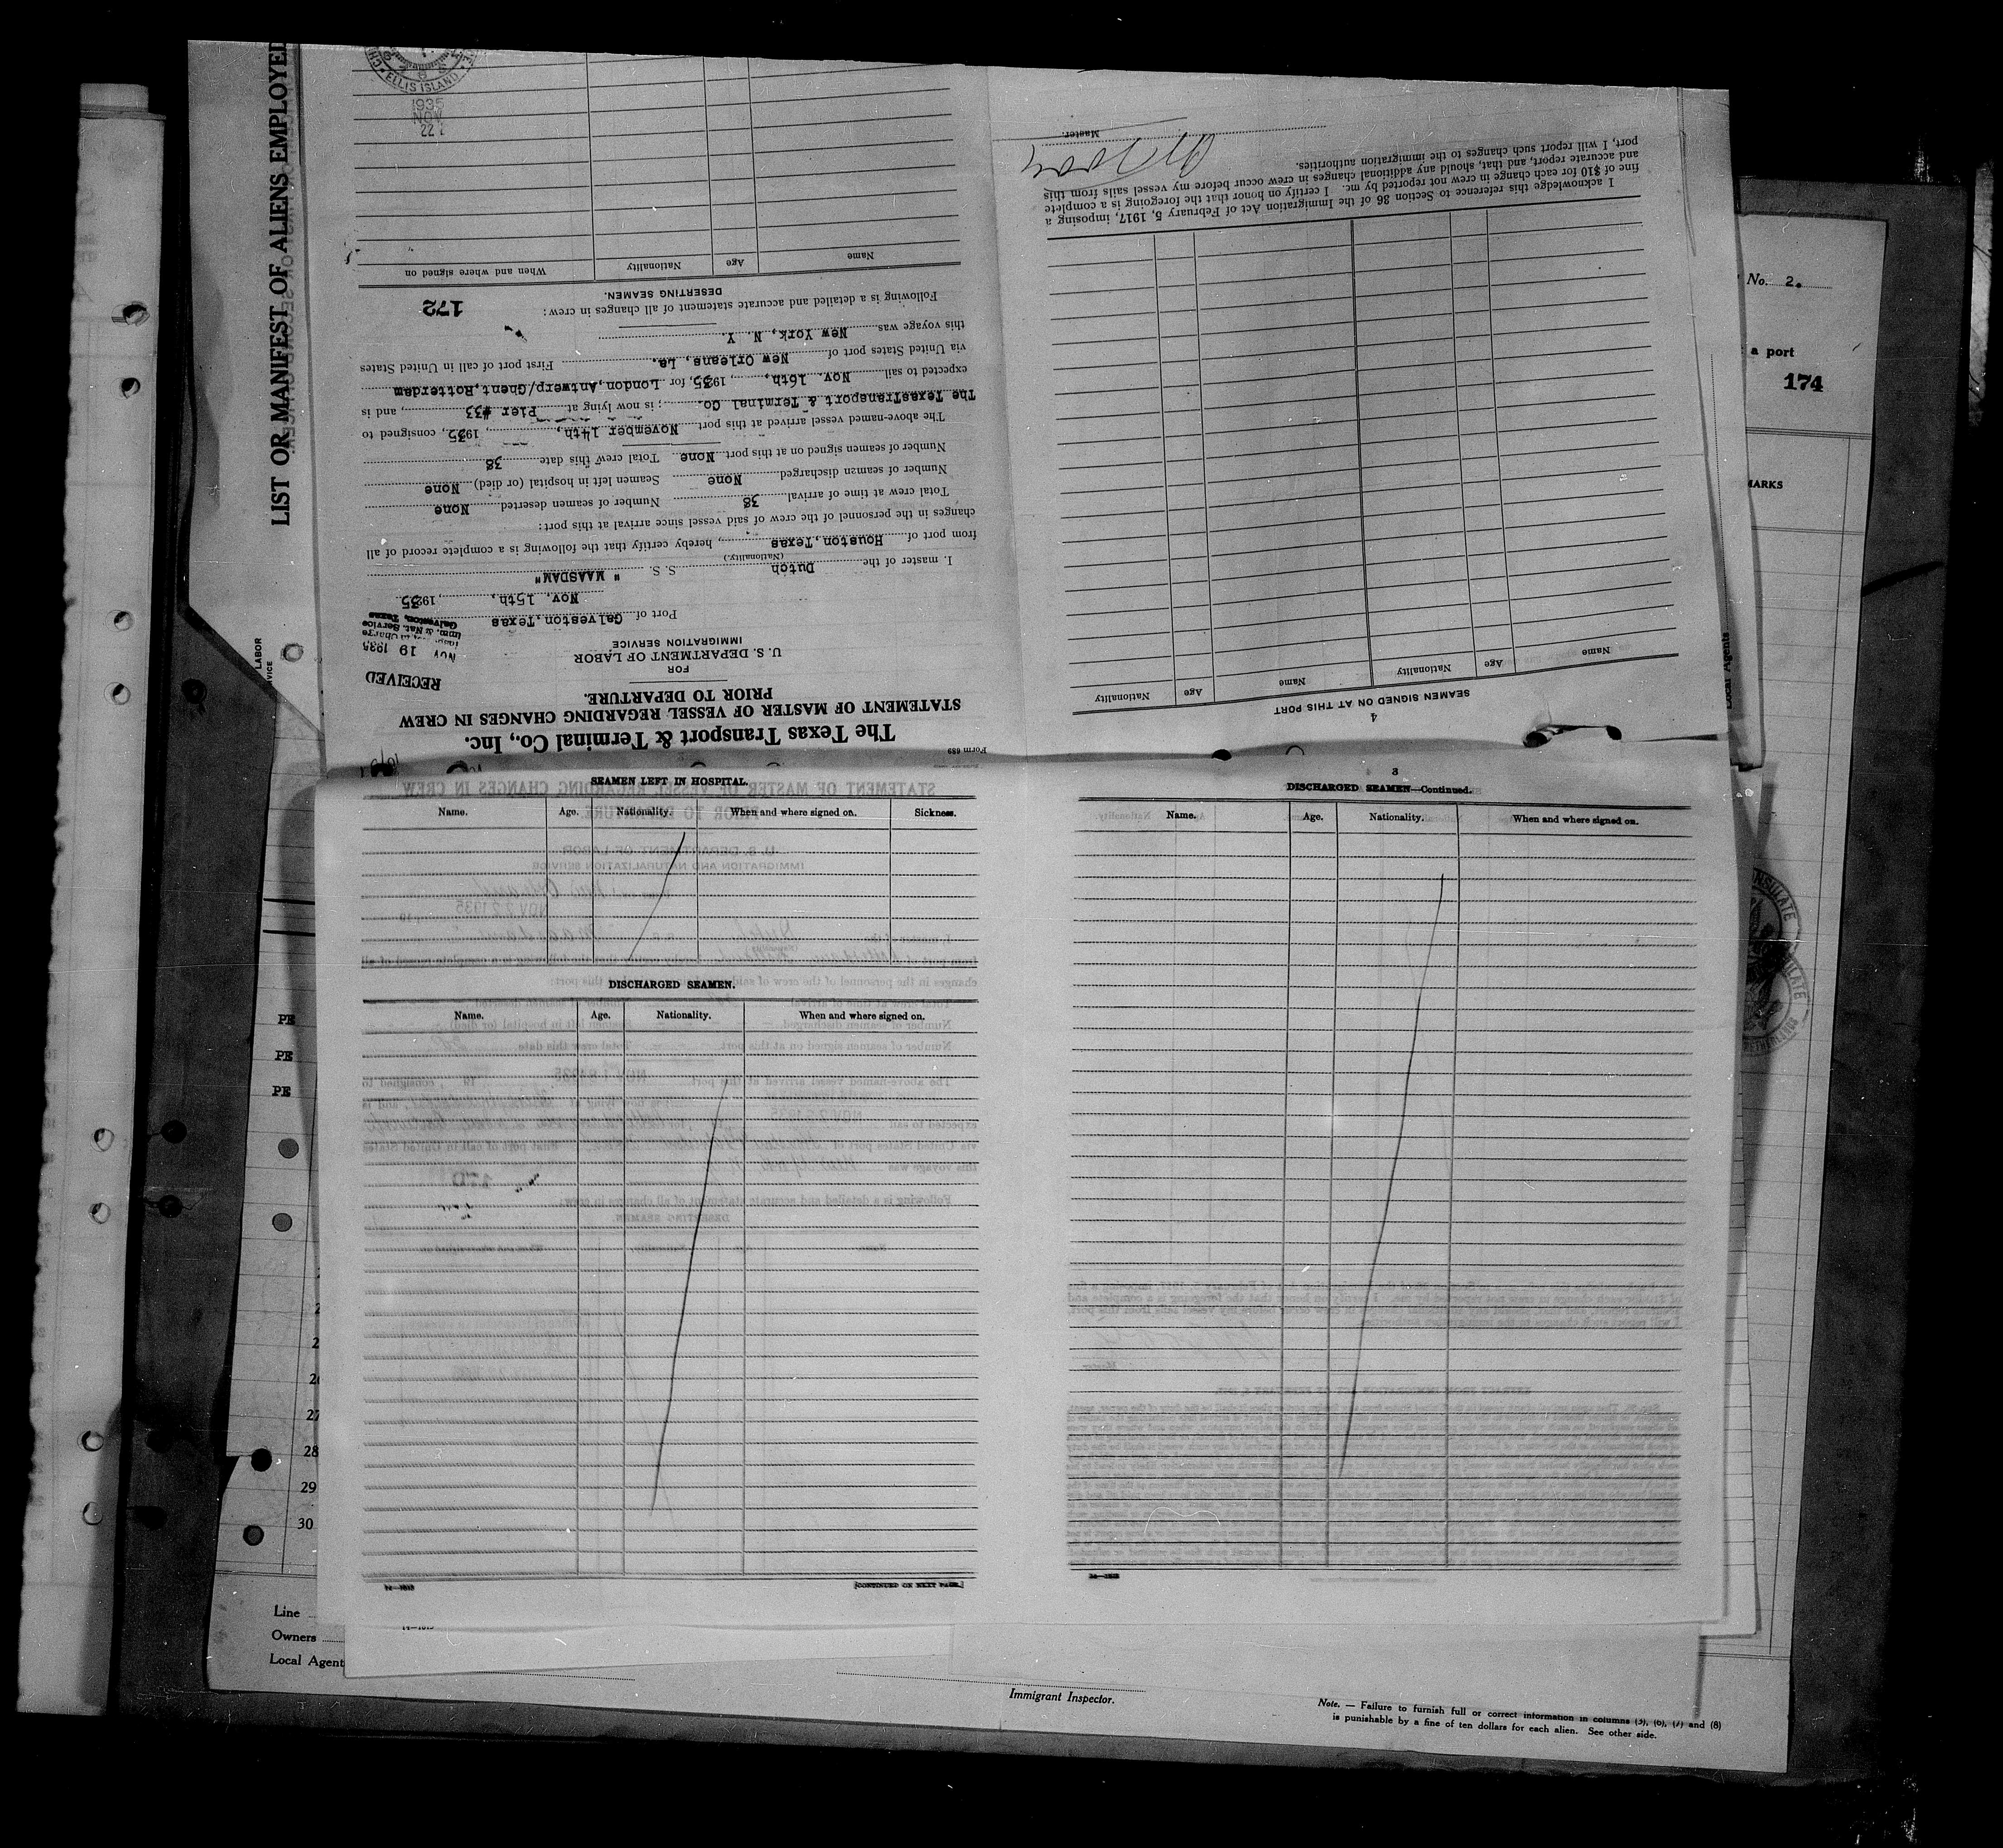 LIST OR MANIFEST OF ALIENS EMPLOYED
ELLIS ISLAND
1935
NOV
22
Form 689
The Texas Transport & Terminal Co., Inc.
STATEMENT OF MASTER OF VESSEL REGARDING CHANGES IN CREW
PRIOR TO DEPARTURE.
FOR
U. S. DEPARTMENT OF LABOR
IMMIGRATION SERVICE
RECEIVED
NOV 19 1935
Imm. & Nat. Service
Galveston, Texas
Port of Galveston, Texas
Nov. 15th, 1935
I, master of the Dutch S. S. " MAASDAM"
(Nationality.)
from port of Houston, Texas, hereby certify that the following is a complete record of all
changes in the personnel of the crew of said vessel since arrival at this port:
Total crew at time of arrival 38 Number of seamen deserted None
Number of seamen discharged None Seamen left in hospital (or died) None
Number of seamen signed on at this port None Total crew this date 38
The above-named vessel arrived at this port November 14th, 1935, consigned to
The TexasTransport & Terminal Co. ; is now lying at Pier #33, and is
expected to sail Nov. 16th, 1935, for London, Antwerp/Ghent, Rotterdam
via United States port of New Orleans, La. First port of call in United States
this voyage was New York, N. Y.
Following is a detailed and accurate statement of all changes in crew:
172
DESERTING SEAMEN.
Name Age Nationality When and where signed on
4
SEAMEN SIGNED ON AT THIS PORT
Name Age Nationality Name Age Nationality
I acknowledge this reference to Section 36 of the Immigration Act of February 5, 1917, imposing a
fine of $10 for each change in crew not reported by me. I certify on honor that the foregoing is a complete
and accurate report, and that, should any additional changes in crew occur before my vessel sails from this
port, I will report such changes to the immigration authorities.
Master.
No. 2.
a port
174
MARKS
Local Agents
LABOR
VICE
SEAMEN LEFT IN HOSPITAL.
Name. Age. Nationality. When and where signed on. Sickness.
DISCHARGED SEAMEN.
Name. Age. Nationality. When and where signed on.
14—1013
[CONTINUED ON NEXT PAGE.]
3
DISCHARGED SEAMEN—Continued.
Name. Age. Nationality. When and where signed on.
PE
PE
PE
27
28
29
30
Line
Owners
Local Agent
Immigrant Inspector.
Note. — Failure to furnish full or correct information in columns (5), (6), (7) and (8)
is punishable by a fine of ten dollars for each alien. See other side.